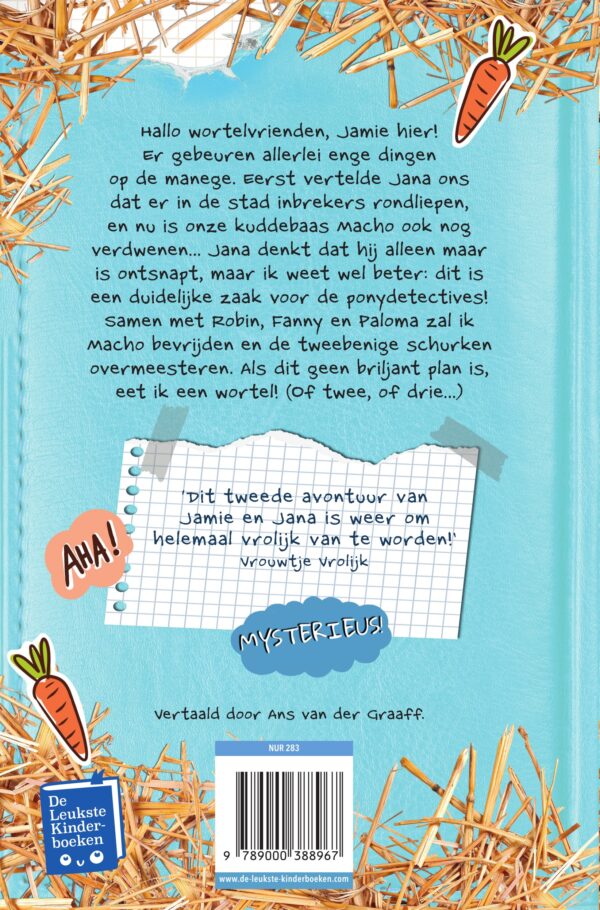 Hallo wortelvrienden, Jamie hier!
Er gebeuren allerlei enge dingen
op de manege. Eerst vertelde Jana ons
dat er in de stad inbrekers rondliepen,
en nu is onze kuddebaas Macho ook nog
verdwenen... Jana denkt dat hij alleen maar
is ontsnapt, maar ik weet wel beter: dit is
een duidelijke zaak voor de ponydetectives!
Samen met Robin, Fanny en Paloma zal ik
Macho bevrijden en de tweebenige schurken
overmeesteren. Als dit geen briljant plan is,
eet ik een wortel! (Of twee, of drie...)
'Dit tweede avontuur van
Jamie en Jana is weer om
helemaal vrolijk van te worden!'
Vrouwtje Vrolijk
AHA!
MYSTERIEUS!
Vertaald door Ans van der Graaff.
De
Leukste
Kinder-
boeken
NUR 283
9 789000 388967
www.de-leukste-kinderboeken.com